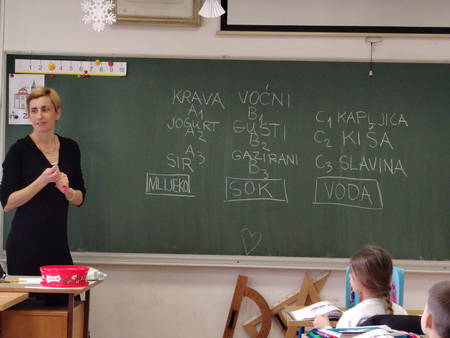 1 2 3 4 5 6 7 8 9 10
KRAVA
A1
JOGURT
A2
A3
SIR
MLIJEKO
VOĆNI
B1
GUSTI
B2
GAZIRANI
B3
SOK
C1 KAPLJICA
C2 KIŠA
C3 SLAVINA
VODA